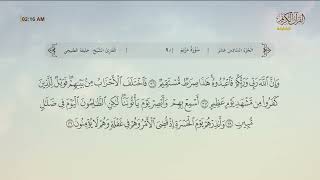 02:16 AM
القرآن الكريم
الجزء السادس عشر | سورة مريم | ٩/١ | القارئ الشيخ: خليفة الطنيجي
وَإِنَّ ٱللَّهَ رَبِّي وَرَبُّكُمۡ فَٱعۡبُدُوهُۚ هَٰذَا صِرَٰطٞ مُّسۡتَقِيمٞ ٣٦ فَٱخۡتَلَفَ ٱلۡأَحۡزَابُ مِنۢ بَيۡنِهِمۡۖ فَوَيۡلٞ لِّلَّذِينَ
كَفَرُواْ مِن مَّشۡهَدِ يَوۡمٍ عَظِيمٍ ٣٧ أَسۡمِعۡ بِهِمۡ وَأَبۡصِرۡ يَوۡمَ يَأۡتُونَنَا لَٰكِنِ ٱلظَّٰلِمُونَ ٱلۡيَوۡمَ فِي ضَلَٰلٖ
مُّبِينٖ ٣٨ وَأَنذِرۡهُمۡ يَوۡمَ ٱلۡحَسۡرَةِ إِذۡ قُضِيَ ٱلۡأَمۡرُ وَهُمۡ فِي غَفۡلَةٖ وَهُمۡ لَا يُؤۡمِنُونَ ٣٩